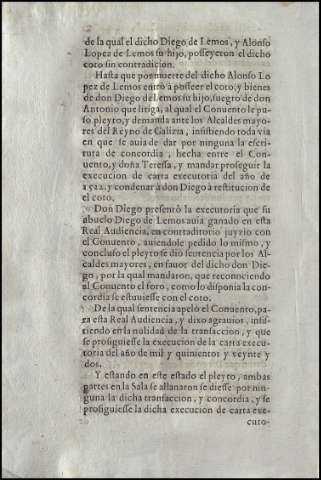 de la qual el dicho Diego de Lemos, y Alonso
Lopez de Lemos su hijo, posseyeron el dicho
coto sin contradicion.
Hasta que por muerte del dicho Alonso Lo
pez de Lemos entrò à posseer el coto, y bienes
de don Diego de Lemos su hijo, suegro de don
Antonio que litiga, al qual el Conuento le pu-
so pleyto, y demanda ante los Alcaldes mayo-
res del Reyno de Galizia, insistiendo toda via
en que se auia de dar por ninguna la escri-
tura de concordia, hecha entre el Con-
uento, y doña Teressa, y mandar proseguir la
execucion de carta executoria del año de
1522. y condenar à don Diego à restitucion de
el coto.
Don Diego presentò la executoria que su
abuelo Diego de Lemos auia ganado en esta
Real Audiencia, en contraditorio juyzio con
el Conuento, auiendole pedido lo mismo, y
concluso el pleyto se diò sentencia por los Al-
caldes mayores, en fauor del dicho don Die-
go, por la qual mandaron, que reconociendo
al Conuento el foro, como lo disponia la con-
cordia se estuuiesse con el coto.
De la qual sentencia apelò el Conuento, pa-
ra esta Real Audiencia, y dixo agrauios, insis-
tiendo en la nulidad de la transaccion, y que
se prosiguiesse la execucion de la carta execu-
toria del año de mil y quinientos y veynte y
dos.
Y estando en este estado el pleyto, ambas
partes en la Sala se allanaron se diesse por nin-
guna la dicha transaccion, y concordia, y se
prosiguiesse la dicha execucion de carta exe-
cuto-